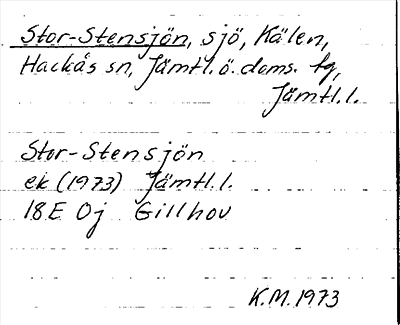 Stor-Stensjön, sjö, Kälen,
Hackås sn, Jämtl.ö. doms. tg,
Jämtl.l.
Stor-Stensjön
ek (1973) Jämtl.l.
18E Oj Gillhov
K.M.1973